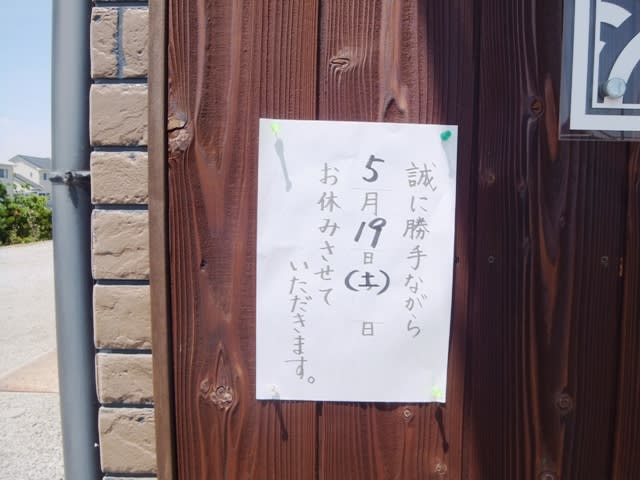 誠に勝手ながら
5月19日(土)　日
お休みさせて
いただきます。